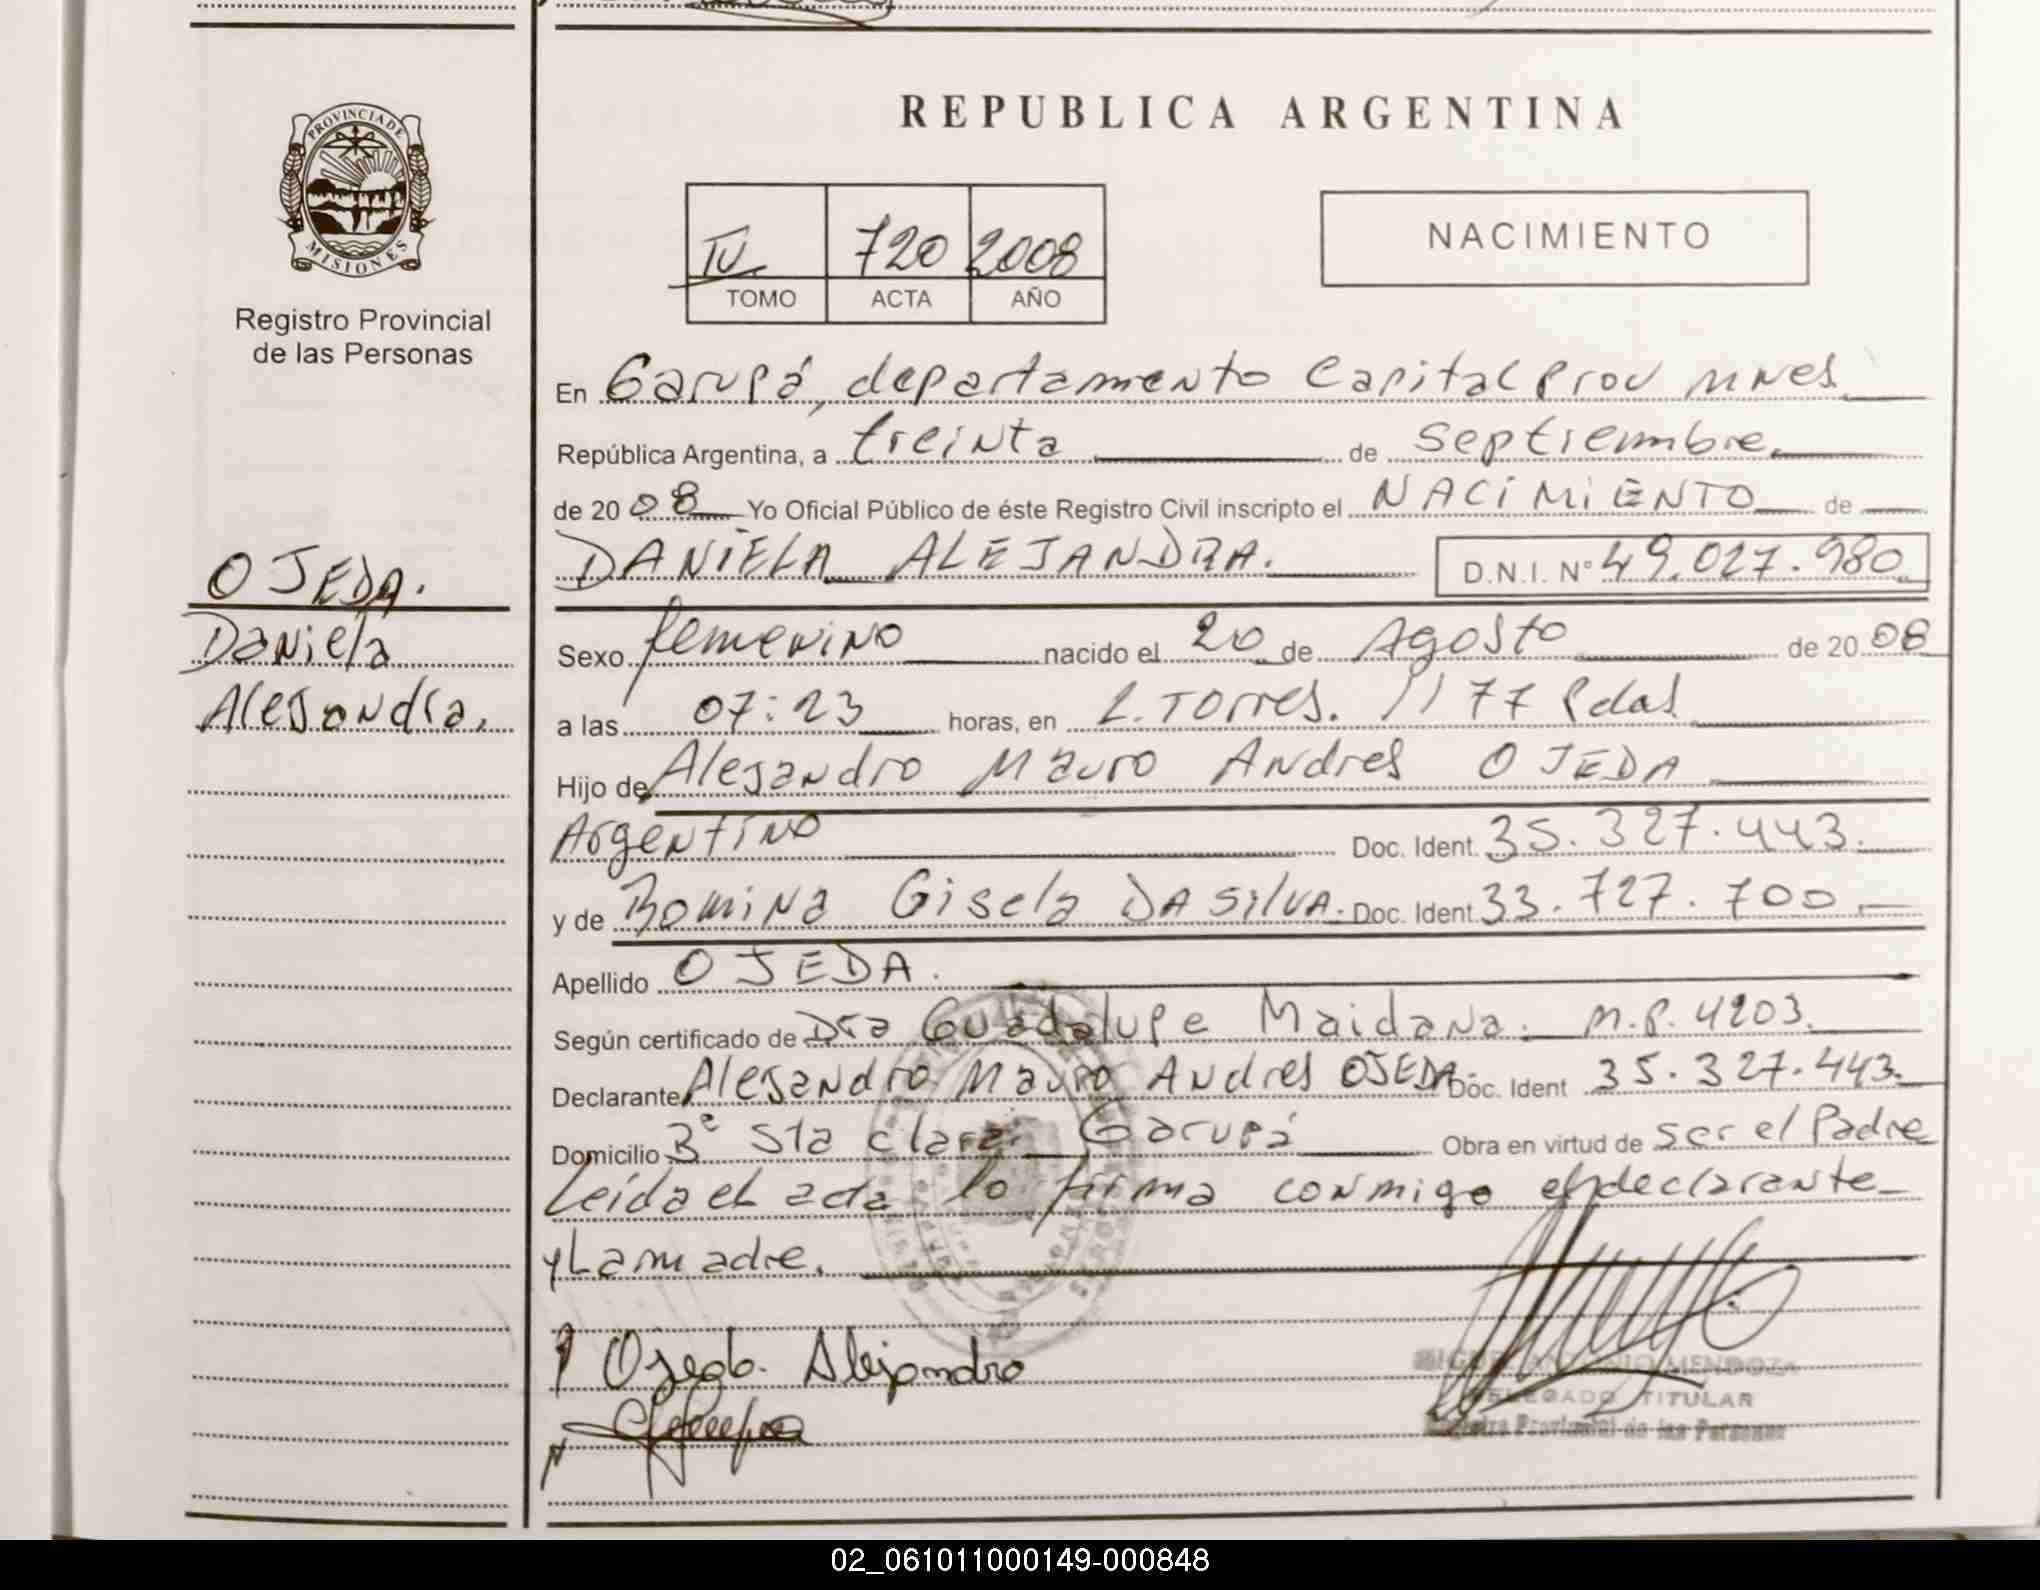 REPUBLICA ARGENTINA
PROVINCIA DE
MISIONES
Registro Provincial
de las Personas
IV 720 2008
TOMO ACTA AÑO
NACIMIENTO
En Garupá, departamento Capital Prov Mnes
República Argentina, a treinta de septiembre
de 2008 Yo Oficial Público de éste Registro Civil inscripto el NACIMIENTO de
DANIELA ALEJANDRA. D.N.I. Nº 49.027.980
OJEDA.
Daniela
Alejandra.
Sexo femenino nacido el 20 de Agosto de 2008
a las 07:23 horas, en L. Torres. 1177 Pdas
Hijo de Alejandro Mauro Andres OJEDA
Argentino Doc. Ident. 35.327.443.
y de Romina Gisela DA SILVA. Doc. Ident. 33.727.700.
Apellido OJEDA.
Según certificado de Dra Guadalupe Maidana. M.P. 4203.
Declarante Alejandro Mauro Andres OJEDA. Doc. Ident 35.327.443.
Domicilio Bº Sta Clara. Garupá Obra en virtud de ser el Padre
Leída el acta lo firma conmigo el declarante
y La madre.
Ojeda. Alejandro
MIGUEL ANTONIO MENDOZA
DELEGADO TITULAR
Registro Provincial de las Personas
02_061011000149-000848